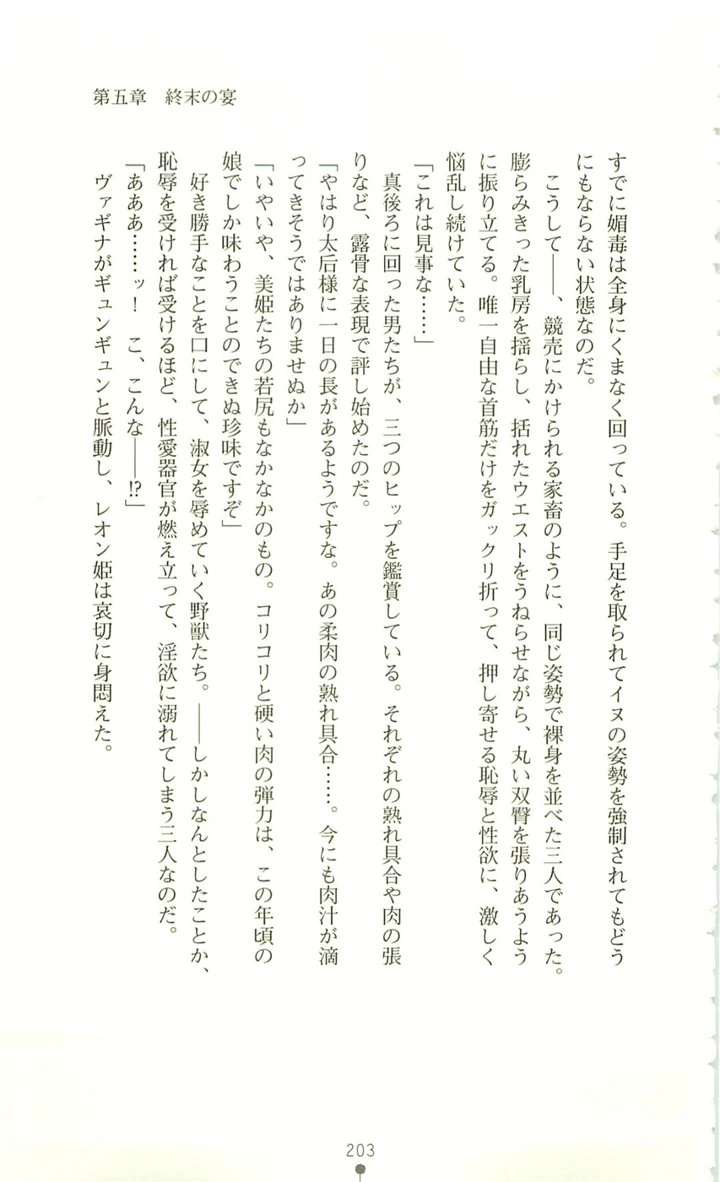 第五章　終末の宴
すでに媚毒は全身にくまなく回っている。手足を取られてイヌの姿勢を強制されてもどう
にもならない状態なのだ。
こうして――、競売にかけられる家畜のように、同じ姿勢で裸身を並べた三人であった。
膨らみきった乳房を揺らし、括れたウエストをうねらせながら、丸い双臀を張りあうよう
に振り立てる。唯一自由な首筋だけをガックリ折って、押し寄せる恥辱と性欲に、激しく
悩乱し続けていた。
「これは見事な……」
真後ろに回った男たちが、三つのヒップを鑑賞している。それぞれの熟れ具合や肉の張
りなど、露骨な表現で評し始めたのだ。
「やはり太后様に一日の長があるようですな。あの柔肉の熟れ具合……。今にも肉汁が滴
ってきそうではありませぬか」
「いやいや、美姫たちの若尻もなかなかのもの。コリコリと硬い肉の弾力は、この年頃の
娘でしか味わうことのできぬ珍味ですぞ」
好き勝手なことを口にして、淑女を辱めていく野獣たち。――しかしなんとしたことか、
恥辱を受ければ受けるほど、性愛器官が燃え立って、淫欲に溺れてしまう三人なのだ。
「あああ……ッ！　こ、こんな――!?」
ヴァギナがギュンギュンと脈動し、レオン姫は哀切に身悶えた。
203